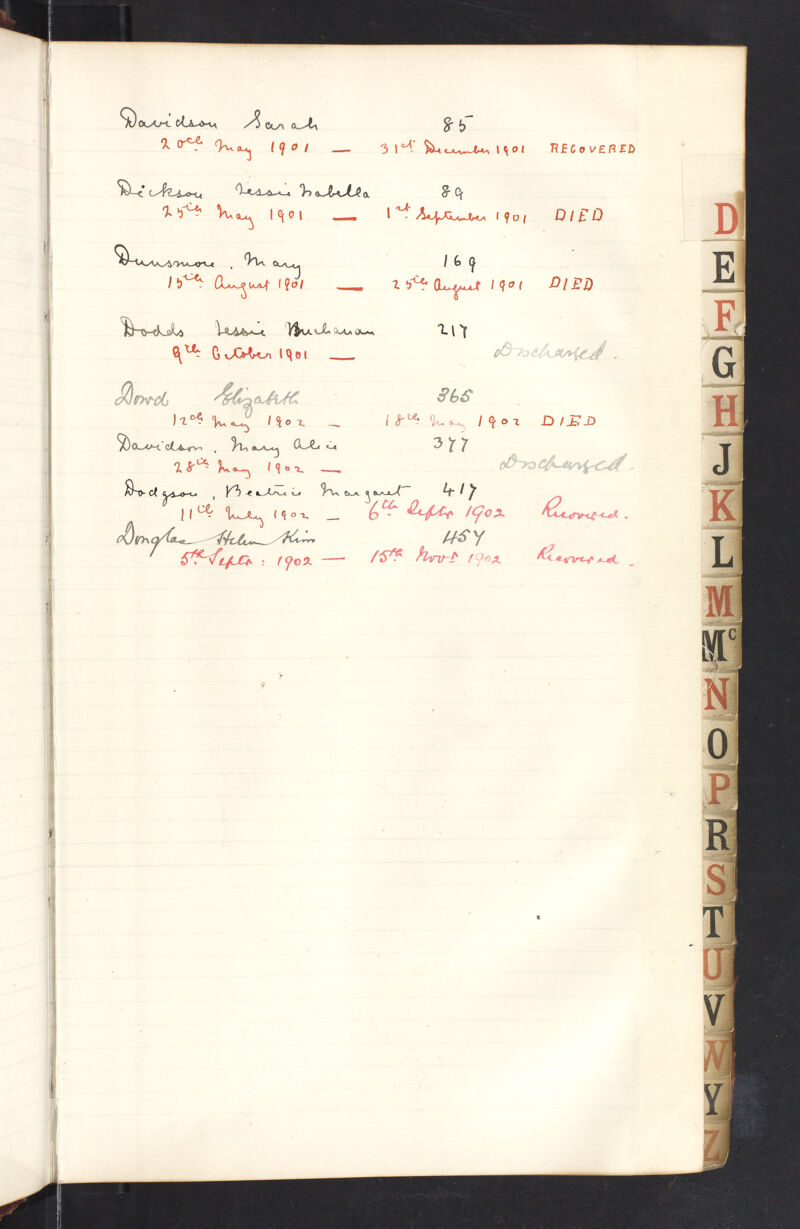 Davidson Sarah 85
20th May 1901 — 31st December 1901 RECOVERED
Dickson Jessie Isabella 89
25th May 1901 — 1st September 1901 DIED
Dunsmore . Mary 169
15th August 1901 — 25th August 1901 DIED
Dodds Jessie Buchanan 217
9th October 1901 — Discharged .
Dowd Elizabeth 365
12th May 1902 — 18th May 1902 DIED
Davidson , Mary Alice 377
28th May 1902 — Discharged .
Dodgson , Beatrice Margaret 417
11th July 1902 — 6th Septr 1902 Recovered .
Douglas Helen 457
5th Septr : 1902 — 15th Novr 1902 Recovered .
D
E
F
G
H
J
K
L
M
Mc
N
O
P
R
S
T
U
V
W
Y
Z